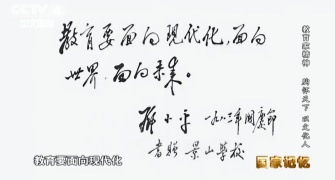 CCTV
教育要面向现代化,面向
世界,面向未来。
邓小平 一九八三年国庆节
书赠 景山学校
教育要面向现代化
教育家精神 胸怀天下 以文化人
国家记忆